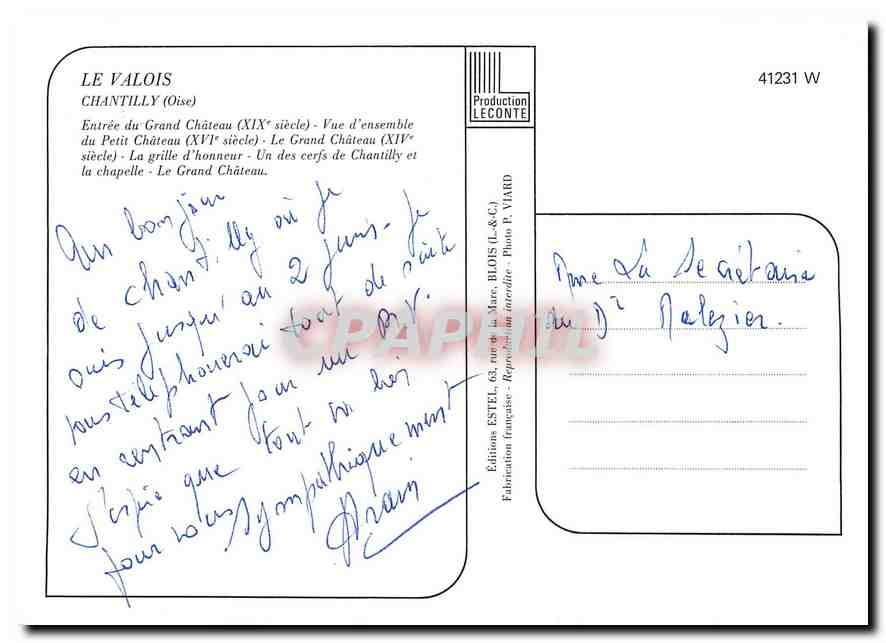 LE VALOIS
CHANTILLY (Oise)
Entrée du Grand Château (XIXe siècle) - Vue d'ensemble
du Petit Château (XVIe siècle) - Le Grand Château (XIVe
siècle) - La grille d'honneur - Un des cerfs de Chantilly et
la chapelle - Le Grand Château.
bonjour
de Chantilly où je
suis jusqu'au 2 juin - Je
vous téléphonerai tout de suite
en rentrant pour un RV.
J'espère que tout va bien
pour vous Sympathiquement
Production
LECONTE
41231 W
Éditions ESTEL, 63, rue de la Mare, BLOIS (L.-&-C.)
Fabrication française - Reproduction interdite - Photo P. VIARD
Mme La Secrétaire
du Dr Malezier.
CPAPHIL